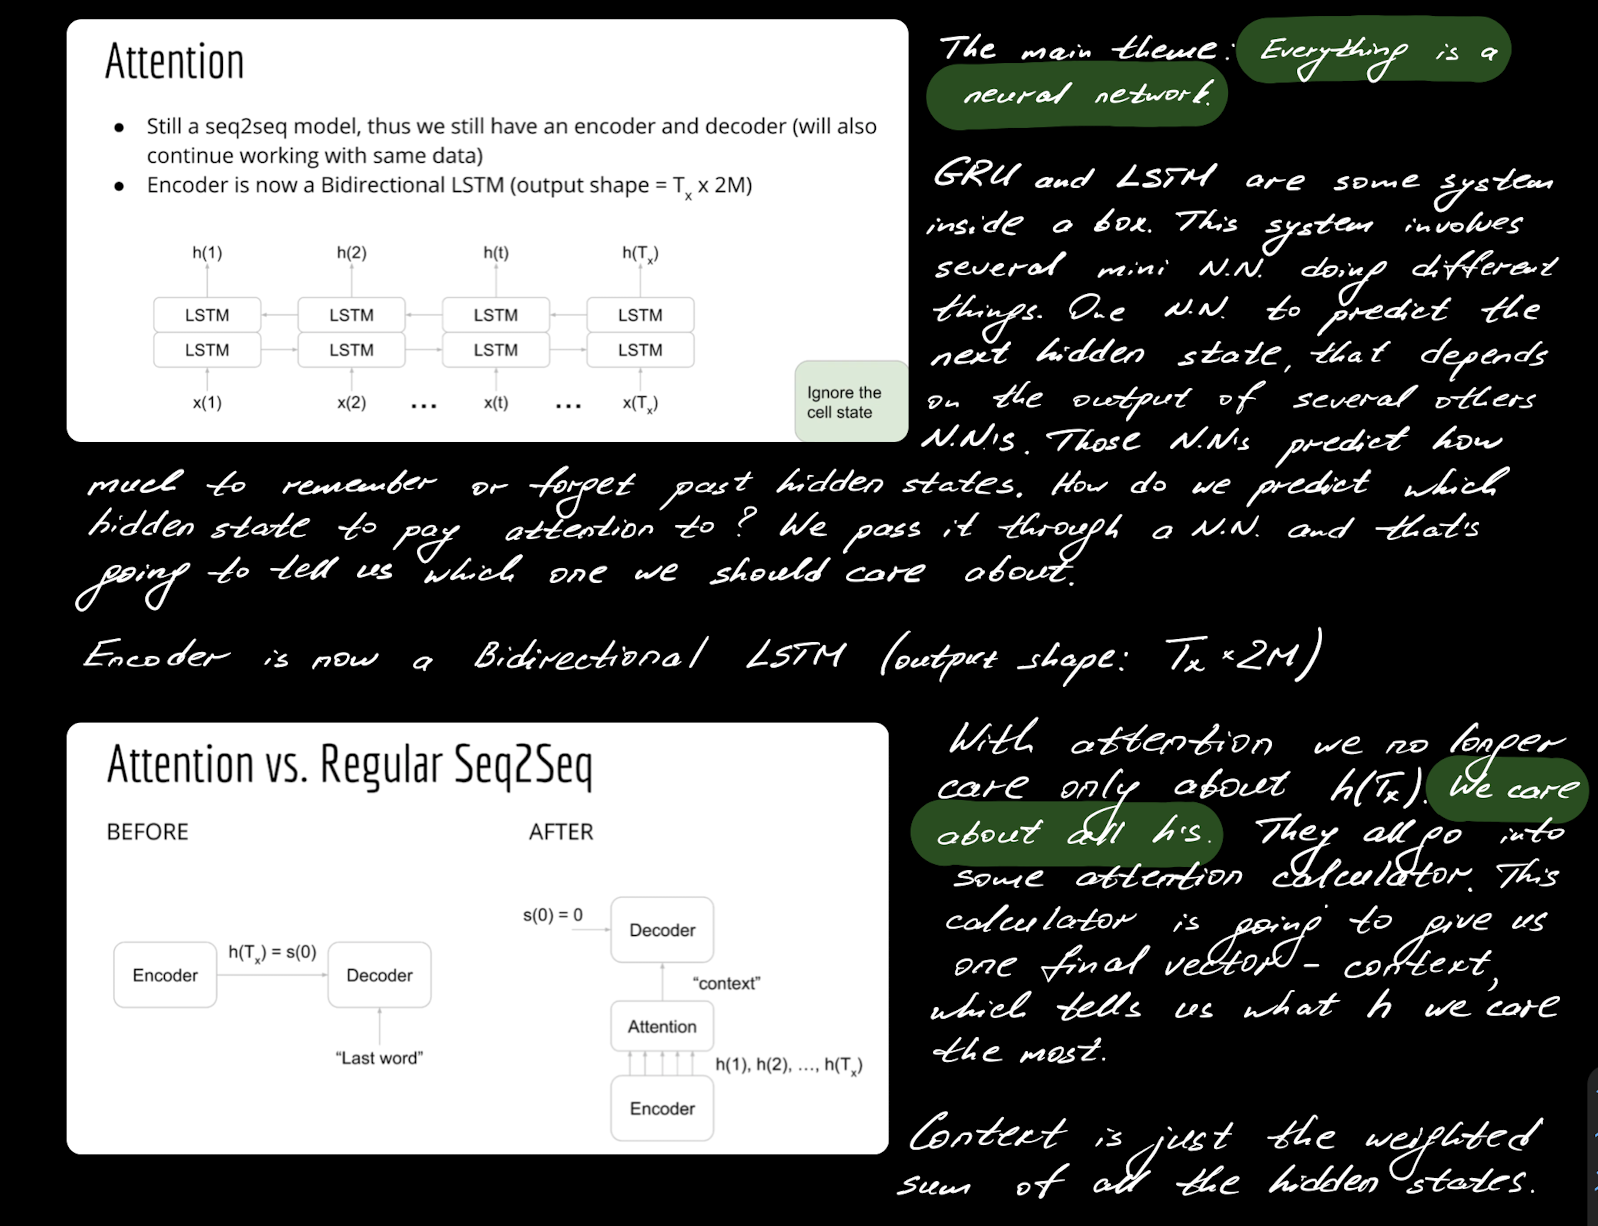 Attention
● Still a seq2seq model, thus we still have an encoder and decoder (will also
continue working with same data)
● Encoder is now a Bidirectional LSTM (output shape = Tx x 2M)
h(1) h(2) h(t) h(Tx)
LSTM LSTM LSTM LSTM
LSTM LSTM LSTM LSTM
x(1) x(2) ... x(t) ... x(Tx)
Ignore the
cell state
The main theme: Everything is a
neural network.
GRU and LSTM are some system
inside a box. This system involves
several mini N.N. doing different
things. One N.N. to predict the
next hidden state, that depends
on the output of several others
N.N's. Those N.N's predict how
much to remember or forget past hidden states. How do we predict which
hidden state to pay attention to? We pass it through a N.N. and that's
going to tell us which one we should care about.
Encoder is now a Bidirectional LSTM (output shape: Tx × 2M)
Attention vs. Regular Seq2Seq
BEFORE
Encoder
h(Tx) = s(0)
Decoder
“Last word”
AFTER
s(0) = 0
Decoder
“context”
Attention
h(1), h(2), ..., h(Tx)
Encoder
With attention we no longer
care only about h(Tx). We care
about all h's. They all go into
some attention calculator. This
calculator is going to give us
one final vector - context,
which tells us what h we care
the most.
Context is just the weighted
sum of all the hidden states.